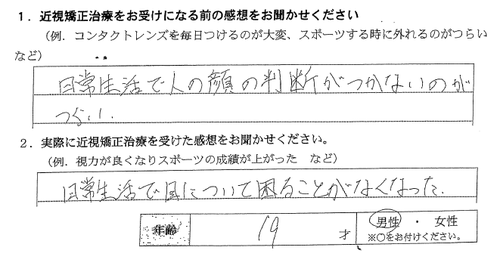 1．近視矯正治療をお受けになる前の感想をお聞かせください
（例．コンタクトレンズを毎日つけるのが大変、スポーツする時に外れるのがつらい
など）
日常生活で人の顔の判断がつかないのが
つらい．
2．実際に近視矯正治療を受けた感想をお聞かせください。
（例．視力が良くなりスポーツの成績が上がった　など）
日常生活で目について困ることがなくなった．
年齢　19　才　男性　・　女性
※○をお付けください。